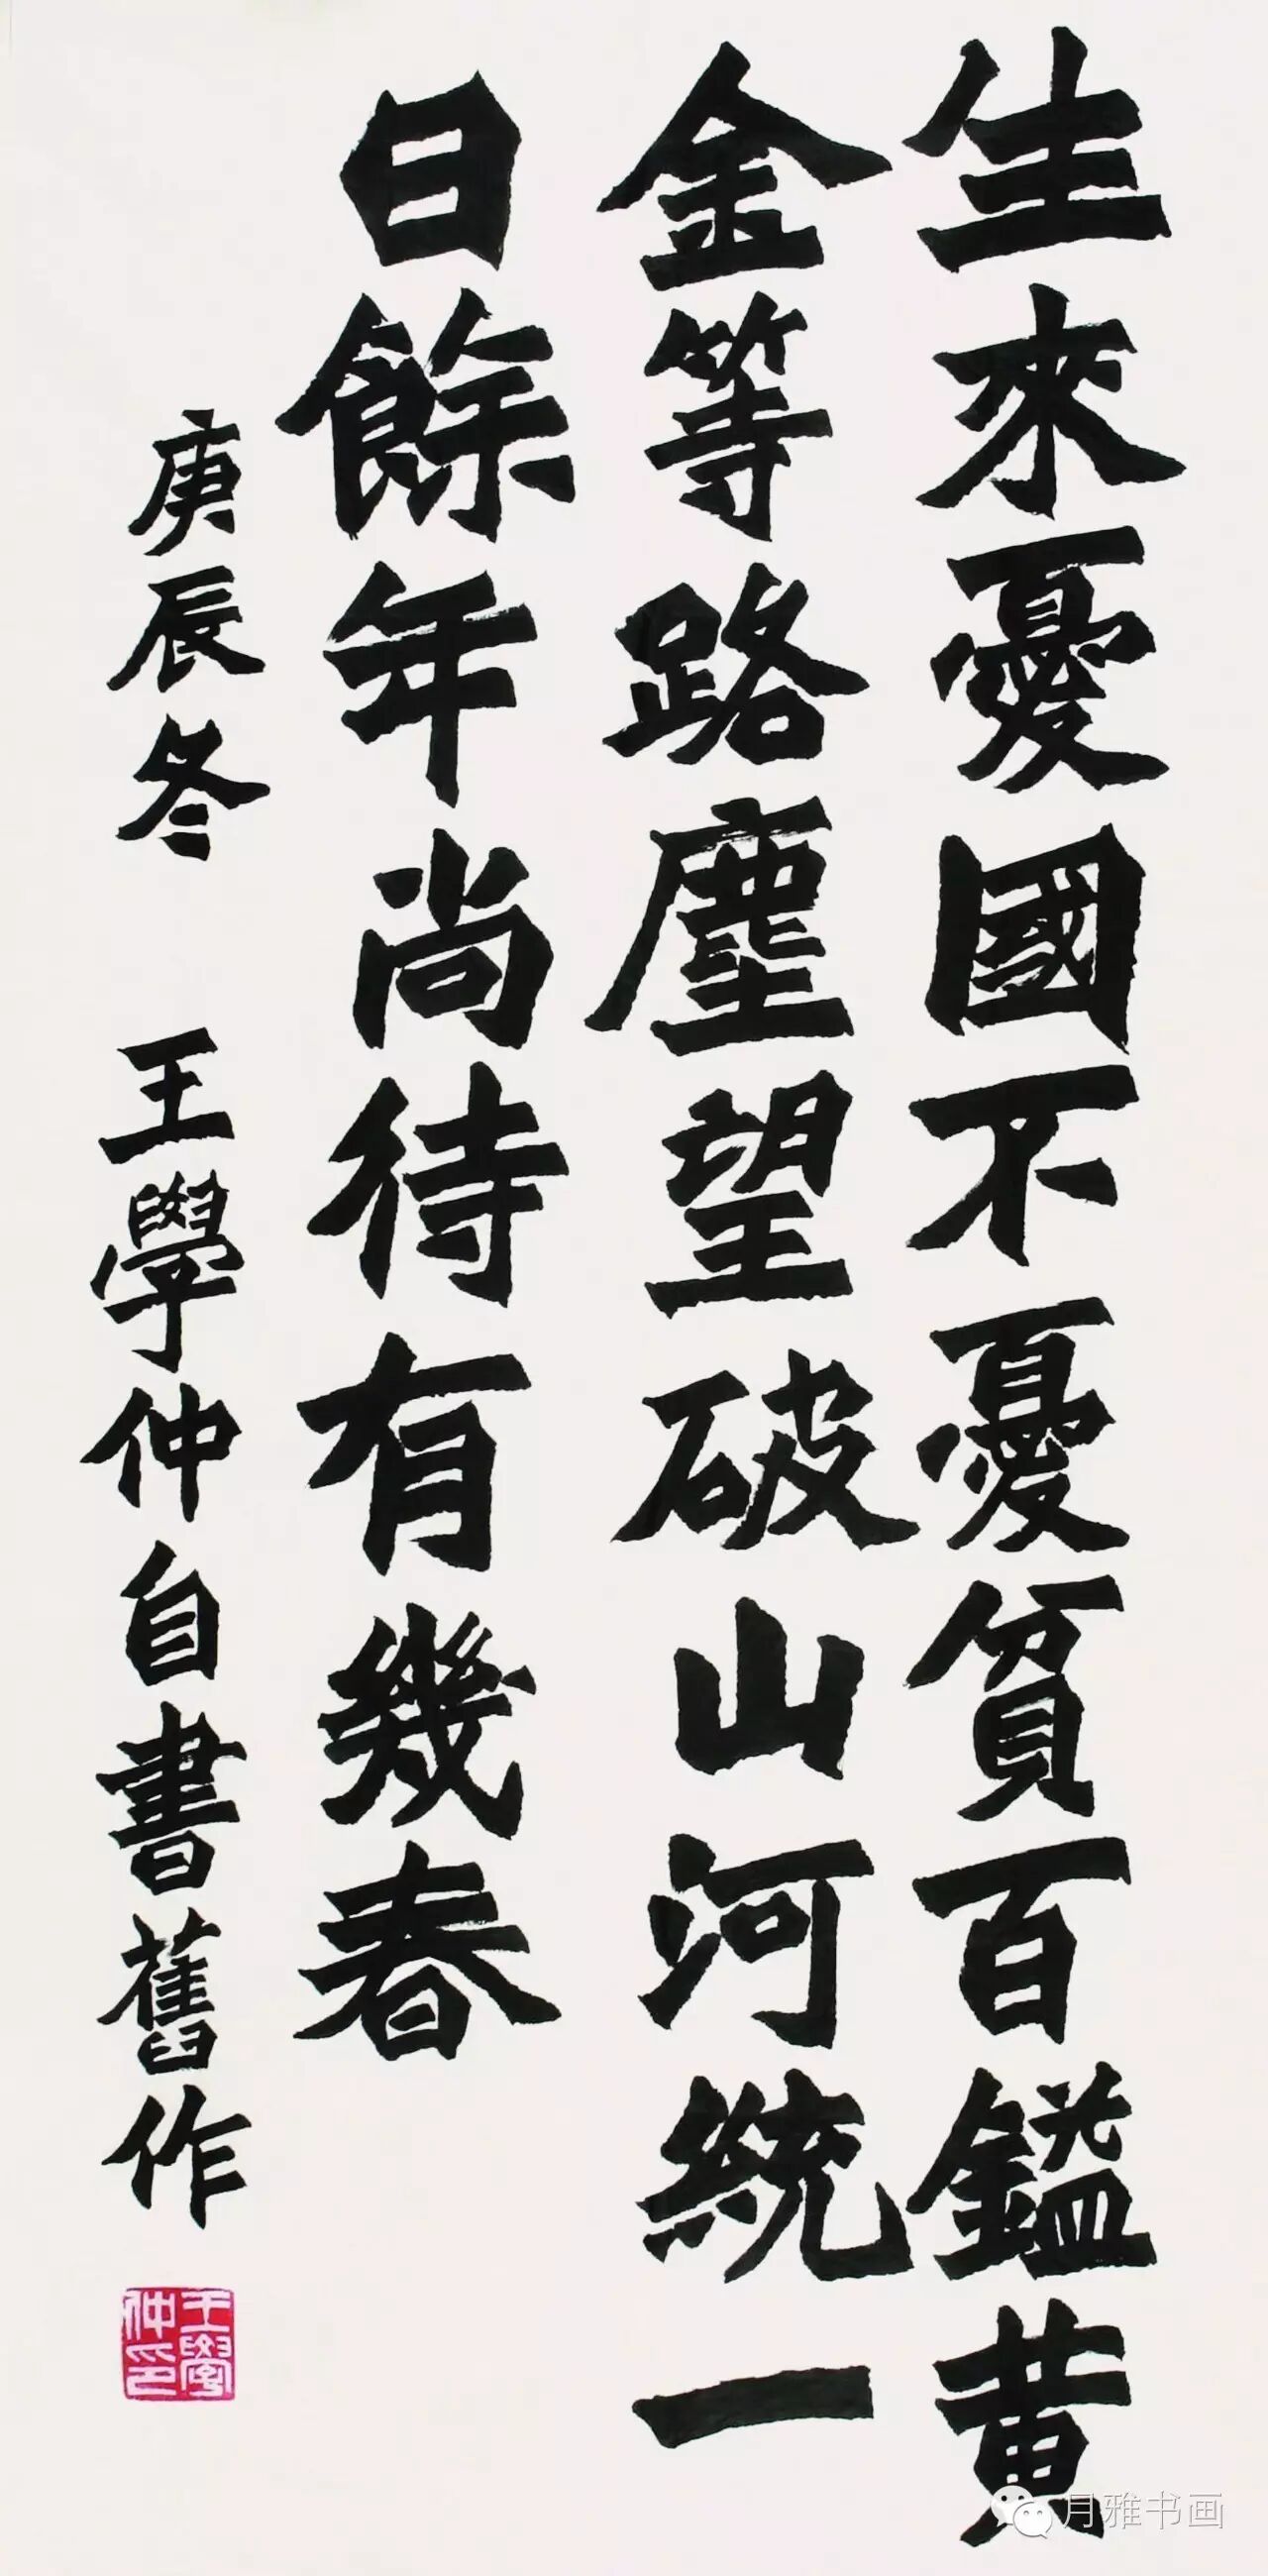 生來憂國不憂貧百鎰黃
金等路塵望破山河統一
日餘年尚待有幾春
庚辰冬 王學仲自書舊作
王學仲印
月雅书画